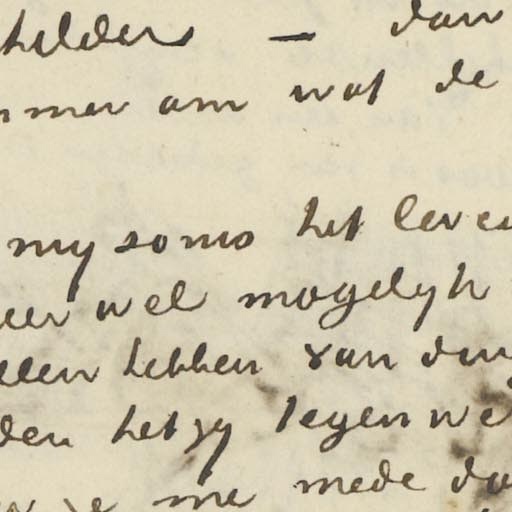 schilders — dan
immer om wat de
my soms het leven
zeer wel mogelyk
willen hebben van din
den hetzy tegenwe
me mede da